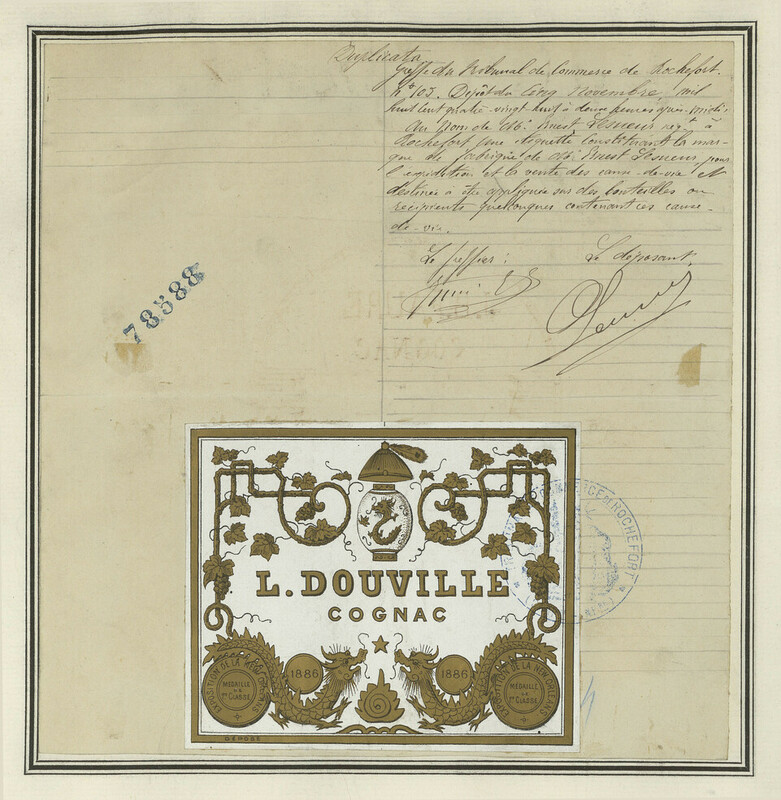 Duplicata
Greffe du Tribunal de Commerce de Rochefort.
No 103. Dépôt du Cinq Novembre, mil
huit cent quatre-vingt huit à deux heures après-midi
Au nom de Mr. Ernest Lesueur négt à
Rochefort une étiquette constituant la mar-
que de fabrique de Mr. Ernest Lesueur, pour
l'expédition et la vente des eaux-de-vie et
destinée à être appliquée sur des bouteilles ou
récipients quelconques contenant ces eaux-
de-vie.
Le greffier: Le déposant,
78588
L. DOUVILLE
COGNAC
1886 1886
EXPOSITION DE LA NEW ORLEANS
MÉDAILLE
DE
1re CLASSE
EXPOSITION DE LA NEW ORLEANS
MÉDAILLE
DE
1re CLASSE
COMMERCE DE ROCHEFORT